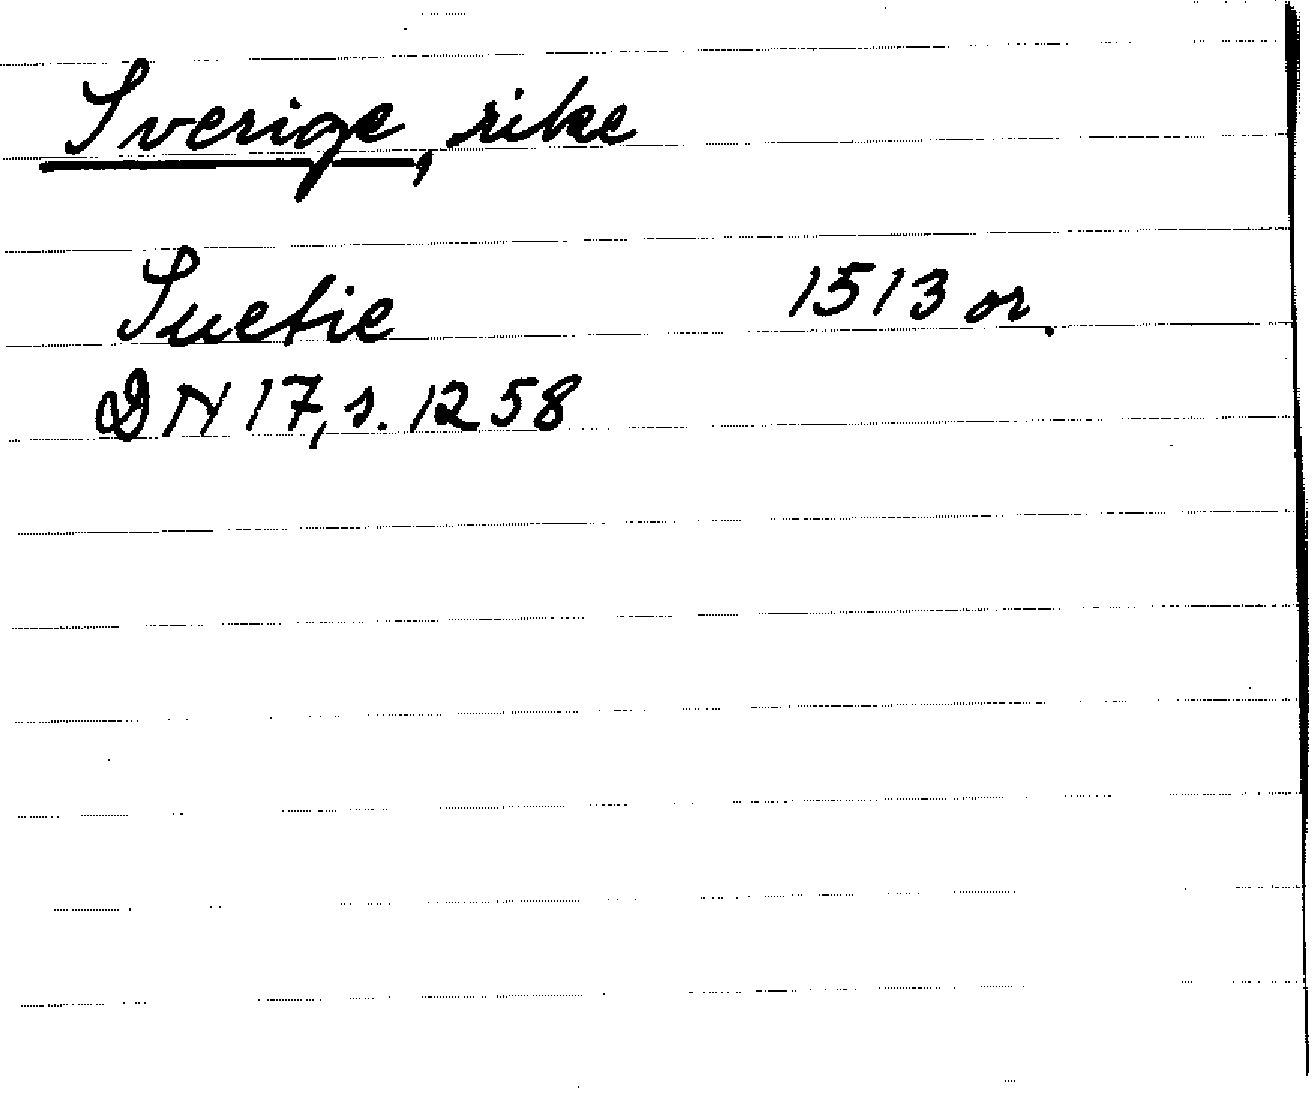 Sverige, rike
Suetie 1513 or.
DN 17, s. 1258